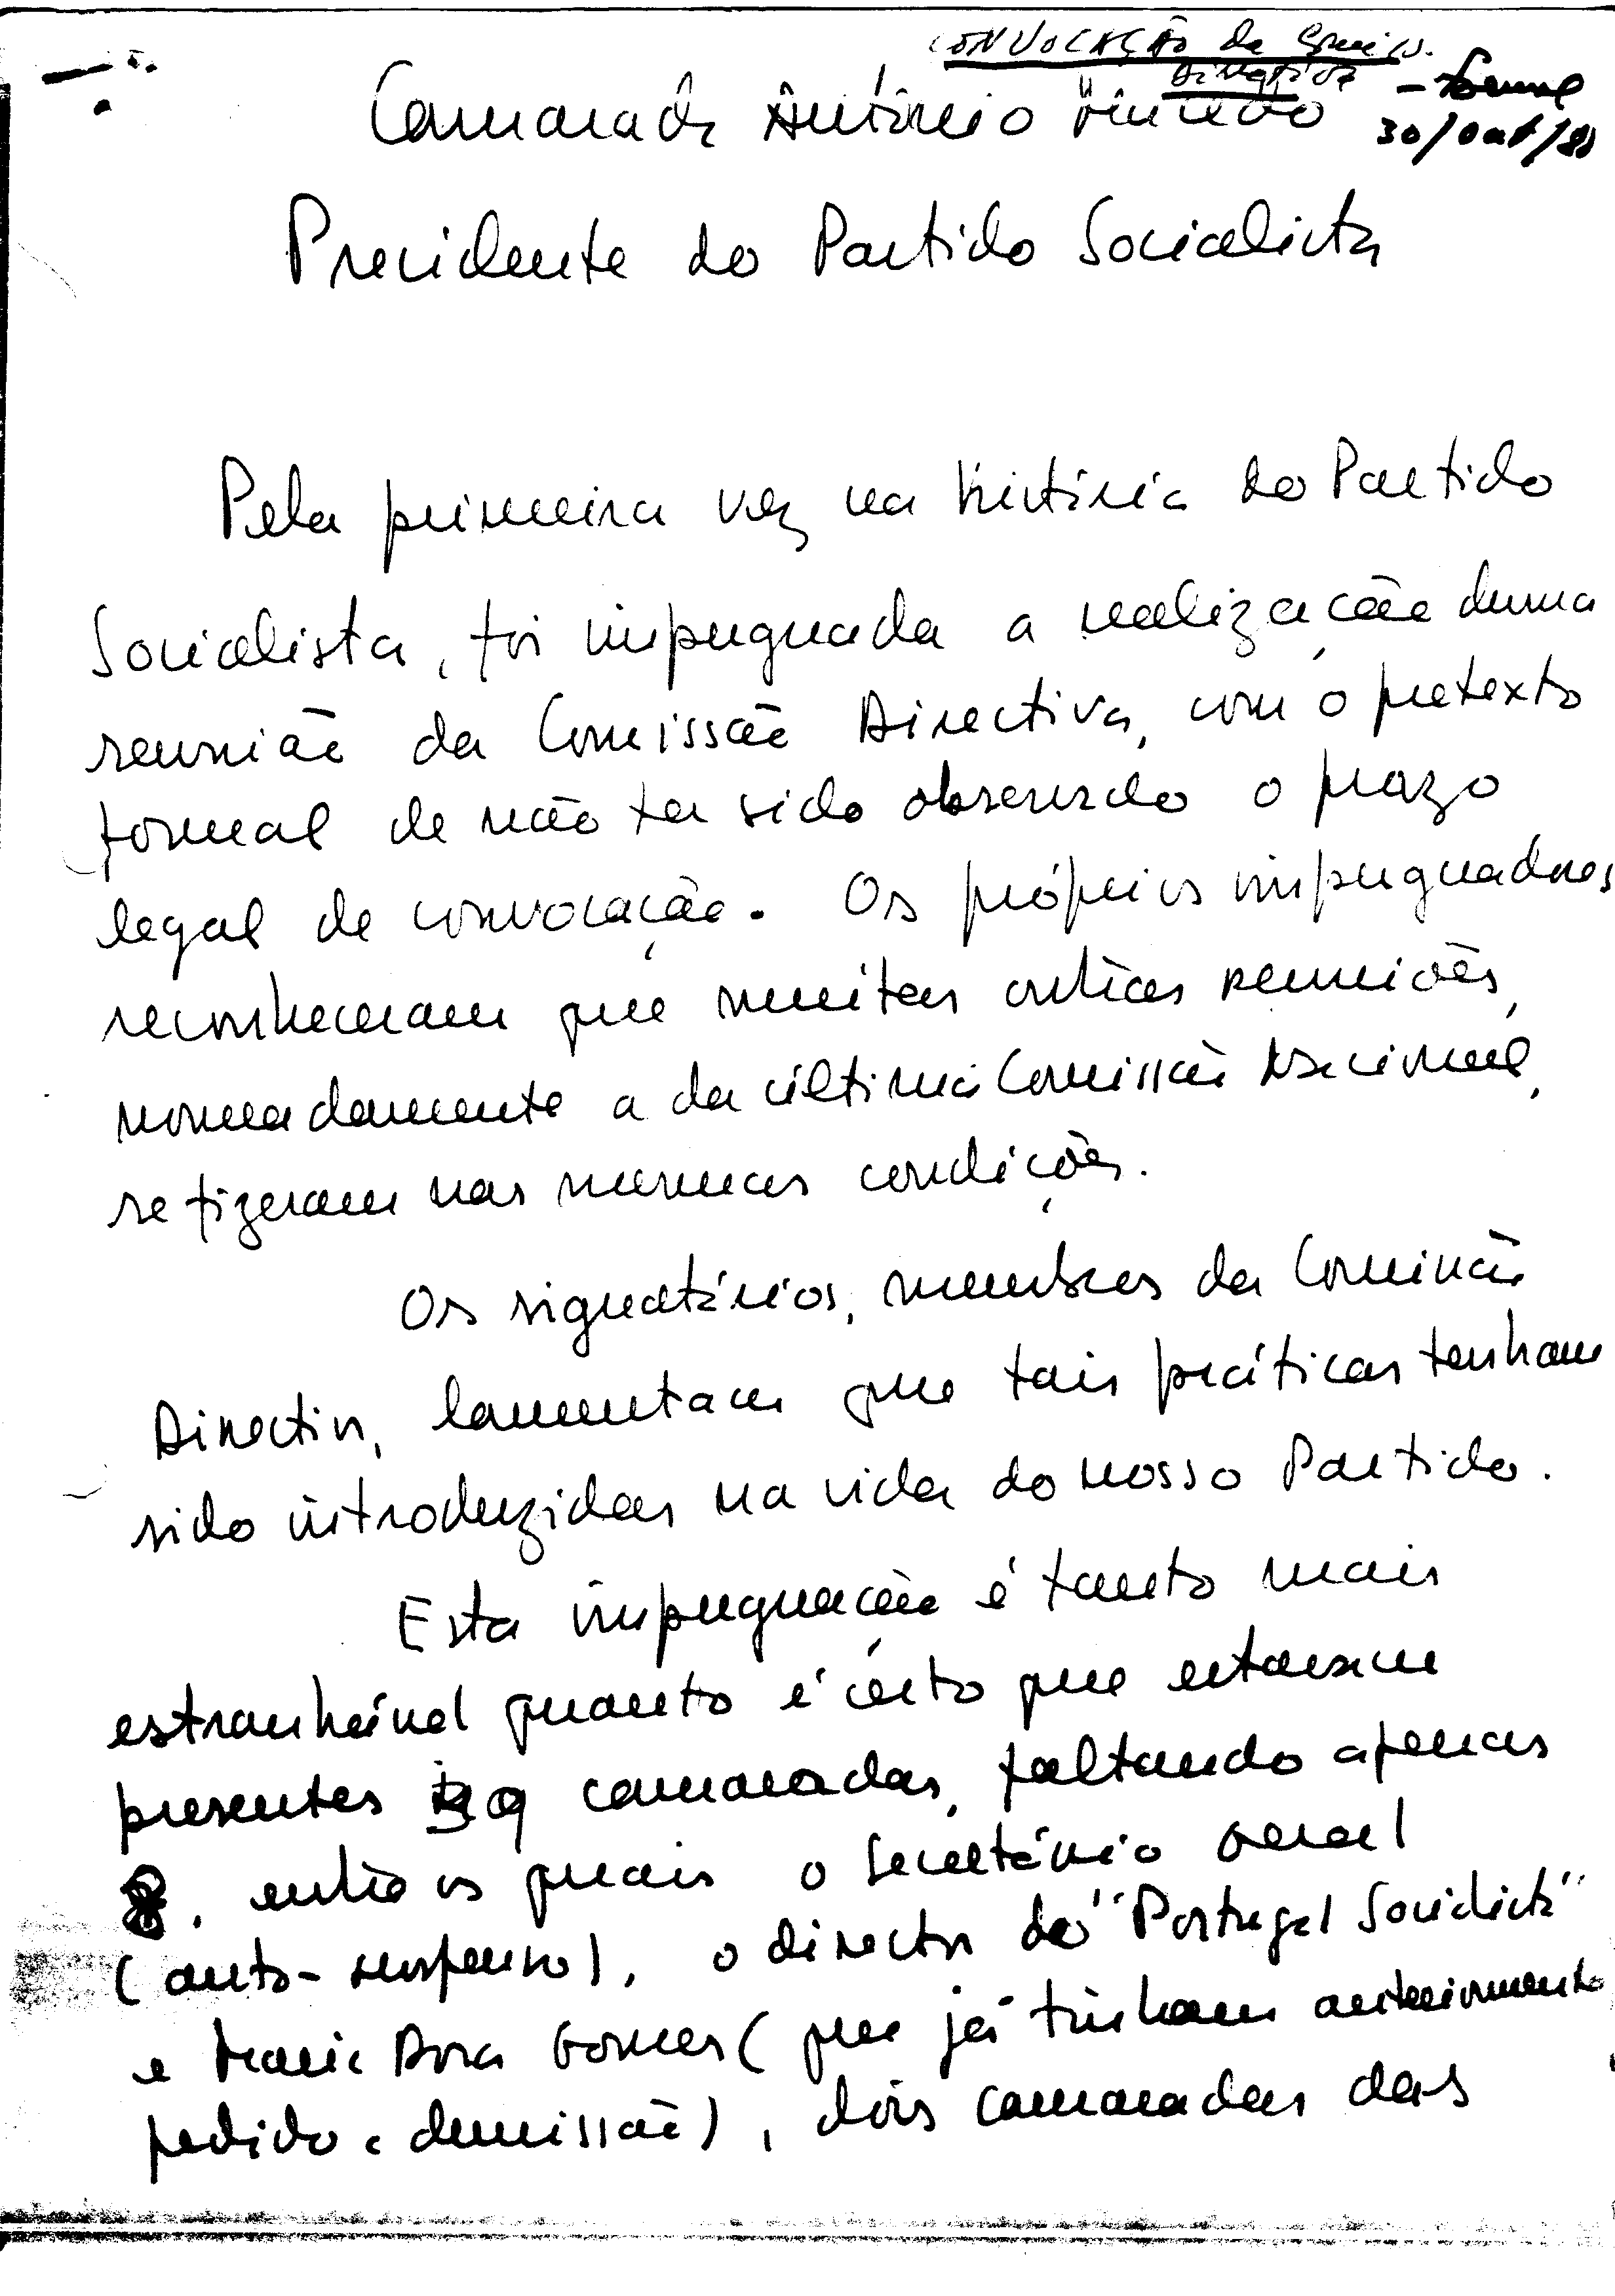 CONVOCAÇÃO da Comiss.
Directiva
- Formal
30/Out/80
Camarada António Macedo
Presidente do Partido Socialista
Pela primeira vez na história do Partido
Socialista, foi impugnada a realização duma
reunião da Comissão Directiva, com o pretexto
formal de não ter sido observado o prazo
legal de convocação. Os próprios impugnadores
reconheceram que muitas outras reuniões,
nomeadamente a da última Comissão Nacional,
se fizeram nas mesmas condições.
Os signatários, membros da Comissão
Directiva, lamentam que tais práticas tenham
sido introduzidas na vida do nosso Partido.
Esta impugnação é tanto mais
estranhável quanto é certo que estavam
presentes camaradas, faltando apenas
8, entre os quais o Secretário Geral
(auto-suspenso), o director do "Portugal Socialista"
e Maria Dora Gomes (que já tinham anteriormente
pedido a demissão), dois camaradas das